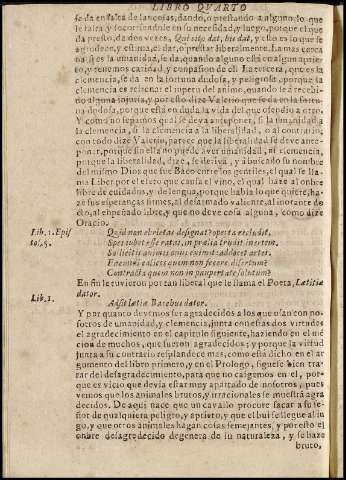 LIBRO QVARTO
se da en falta de las cosas, dando, o prestando a alguno lo que
le falta, y socorriendole en su necesidad, y luego, porque el que
da presto, da dos vezes, Qui cito dat, bis dat, y esto es lo que se
agradece, y estima, el dar, o prestar liberalmente. La mas cerca
na es la vmanidad, se da, quando alguno està en algun aprie-
to, y tenemos caridad y compasion del. La tercera, que es la
clemencia, se da en la fortuna dudosa, y peligrosa, porque la
clemencia es refrenar el impetu del animo, quando se à recebi-
do alguna injuria, y por esto dize Valerio que se da en la fortu-
na dudosa, porque està en duda la vida del que ofendio a otro.
Y como no sepamos qual se deva anteponer, si la vmanidad a
la clemencia, si la clemencia a la liberalidad, o al contrario,
con todo dize Valerio, parece que la liberalidad se deve ante-
poner, porque sin ella no puede aver vmanidad, ni clemencia,
porque la liberalidad, dize, se deriva, y à buscado su nombre
del mismo Dios que fue Baco entre los gentiles, el qual se lla-
ma Liber por el efeto que causa el vino, el qual haze al onbre
libre de cuidados, y de lengua, porque habla lo que quiere, ha-
ze sus esperanças firmes, al desarmado valiente, al inorante do
cto, al enpeñado libre, y que no deve cosa alguna, como dize
Oracio.
Lib. 1. Epis
tol. 5.
Quid non ebrietas designat? operta recludit.
Spes iubet esse ratas, in prælia trudit inertem.
Sollicitis animis onus eximit: addocet artes.
Fæcundi calices quem non fecere disertum?
Contracta quem non in paupertate solutum?
En fin le tuvieron por tan liberal que le llama el Poeta, Lætitiæ
dator.
Lib. 1.
Adsit lætitiæ Bacchus dator.
Y por quanto devemos ser agradecidos a los que vsan con no-
sotros de vmanidad, y clemencia, junta con estas dos virtudes
el agradecimiento en el capitulo siguiente, haziendo en el mencion
de muchos, que fueron agradecidos; y porque la virtud
junta a su contrario resplandece mas, como està dicho en el ar
gumento del libro primero, y en el Prologo, siguese bien tra-
tar del desagradecimiento, para que no caigamos en el, por-
que es vicio que devia estar muy apartado de nosotros, pues
vemos que los animales brutos, y irracionales se muestrã agra
decidos. De aqui nace que un cavallo procure sacar a su se-
ñor de qualquiera peligro, y aprieto, y que el buei se llegue al in
go, y que otros animales hagan cosas semejantes, y por esto el
onbre desagradecido degenera de su naturaleza, y se haze
bruto,